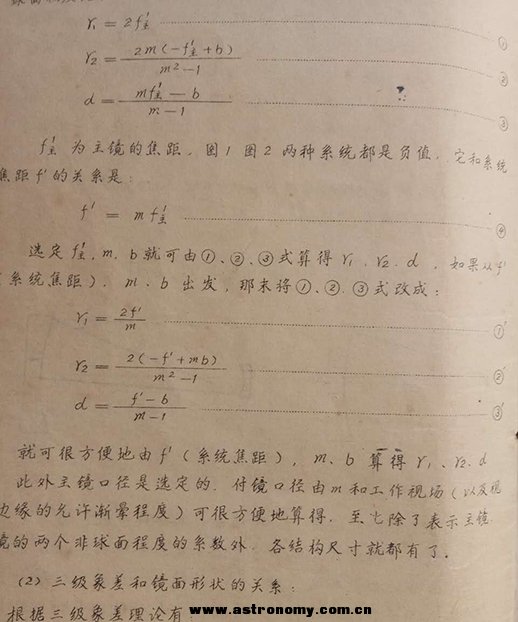 r₁ = 2f′主 ①
r₂ = 2m(-f′主+b) / m²-1 ②
d = mf′主-b / m-1 ③
f′主 为主镜的焦距。图1 图2 两种系统都是负值。它和系统
焦距f′的关系是:
f′ = mf′主 ④
选定f′主, m, b就可由①、②、③式算得r₁、r₂、d, 如果从f′
(系统焦距)、m、b 出发, 那末将①、②、③式改成:
r₁ = 2f′ / m ①′
r₂ = 2(-f′+mb) / m²-1 ②′
d = f′-b / m-1 ③′
就可很方便地由f′(系统焦距), m、b 算得 r₁、r₂、d
此外主镜口径是选定的, 付镜口径由m和工作视场(以及视
边缘的允许渐晕程度)可很方便地算得。至七除了表示主镜
镜的两个非球面程度的系数外, 各结构尺寸就都有了。
(2) 三级象差和镜面形状的关系:
根据三级象差理论有:
www.astronomy.com.cn